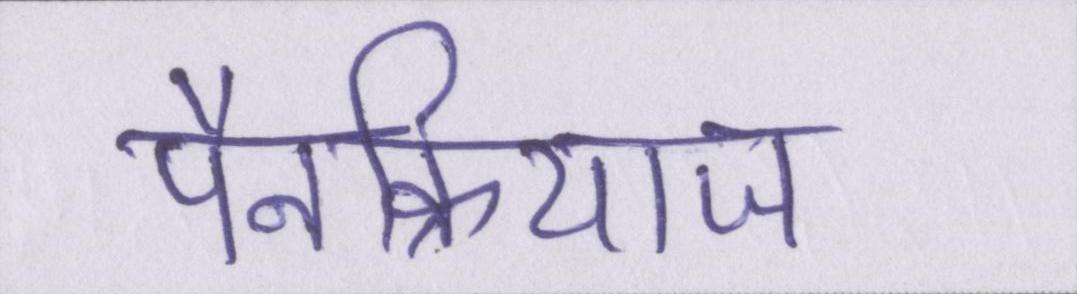 पैनक्रियाज